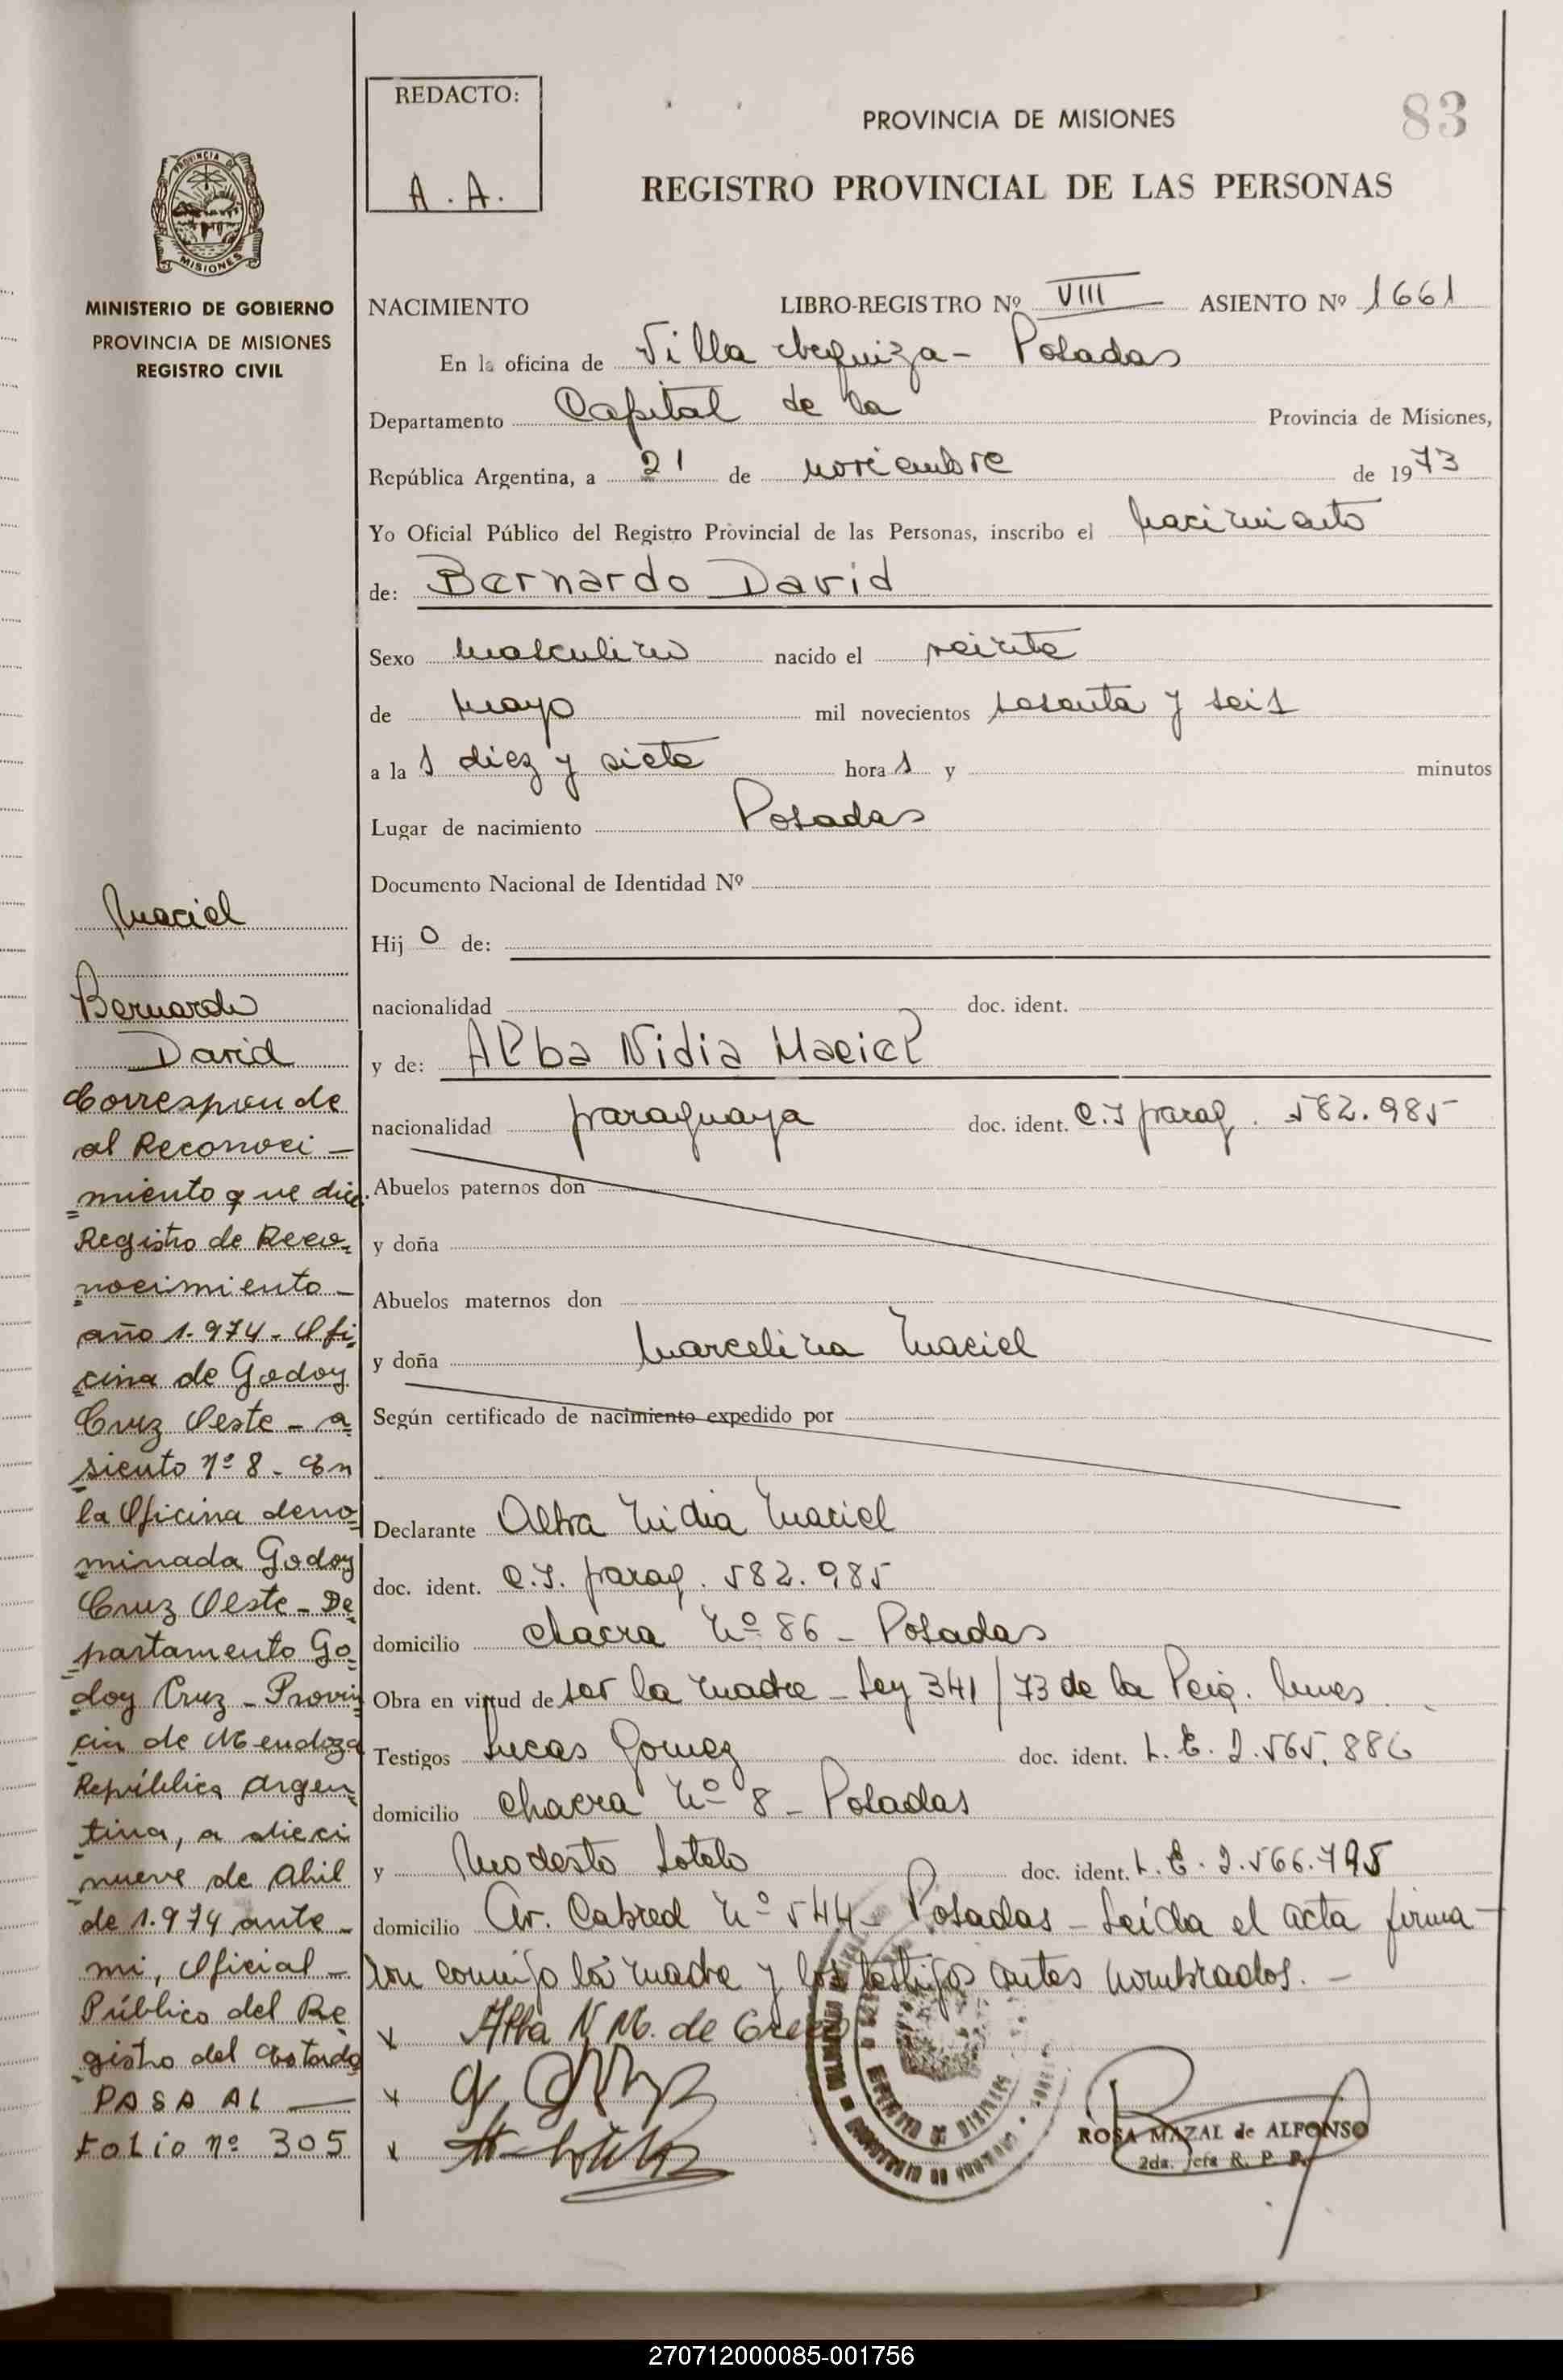 83
REDACTO:
A. A.
PROVINCIA DE MISIONES
REGISTRO PROVINCIAL DE LAS PERSONAS
PROVINCIA DE
MISIONES
MINISTERIO DE GOBIERNO
PROVINCIA DE MISIONES
REGISTRO CIVIL
NACIMIENTO LIBRO-REGISTRO Nº VIII ASIENTO Nº 1661
En la oficina de Villa Urquiza - Posadas
Departamento Capital de la Provincia de Misiones,
República Argentina, a 21 de noviembre de 1973
Yo Oficial Público del Registro Provincial de las Personas, inscribo el nacimiento
de: Bernardo David
Sexo masculino nacido el veinte
de mayo mil novecientos sesenta y seis
a las diez y siete horas y minutos
Lugar de nacimiento Posadas
Documento Nacional de Identidad Nº
Hijo de:
nacionalidad doc. ident.
y de: Alba Nidia Maciel
nacionalidad paraguaya doc. ident. C.I parag. 582.985
Abuelos paternos don
y doña
Abuelos maternos don
y doña Marcelina Maciel
Según certificado de nacimiento expedido por
Declarante Alba Nidia Maciel
doc. ident. C.I. parag. 582.985
domicilio chacra Nº 86 - Posadas
Obra en virtud de ser la madre - Ley 341/73 de la Pcia. Mnes.
Testigos Lucas Gomez doc. ident. L.E. 2.565.886
domicilio chacra Nº 8 - Posadas
y Modesto Sotelo doc. ident. L.E. 2.566.795
domicilio Av. Cabred Nº 544 - Posadas - Leída el acta firma-
ron conmigo la madre y los testigos antes nombrados. -
x Alba N M. de
x
x
ROSA MAZAL de ALFONSO
2da. Jefa R. P. P.
Maciel
Bernardo
David
Corresponde
al Reconoci-
miento que dice:
Registro de Reco-
nocimiento -
año 1.974 - Ofi-
cina de Godoy
Cruz Oeste - a-
siento nº 8 - En
la Oficina deno-
minada Godoy
Cruz Oeste - De-
partamento Go-
doy Cruz - Provin-
cia de Mendoza
República Argen-
tina, a dieci
nueve de Abril
de 1.974 ante -
mi, Oficial -
Público del Re-
gistro del Estado
PASA AL —
FOLIO Nº 305
270712000085-001756